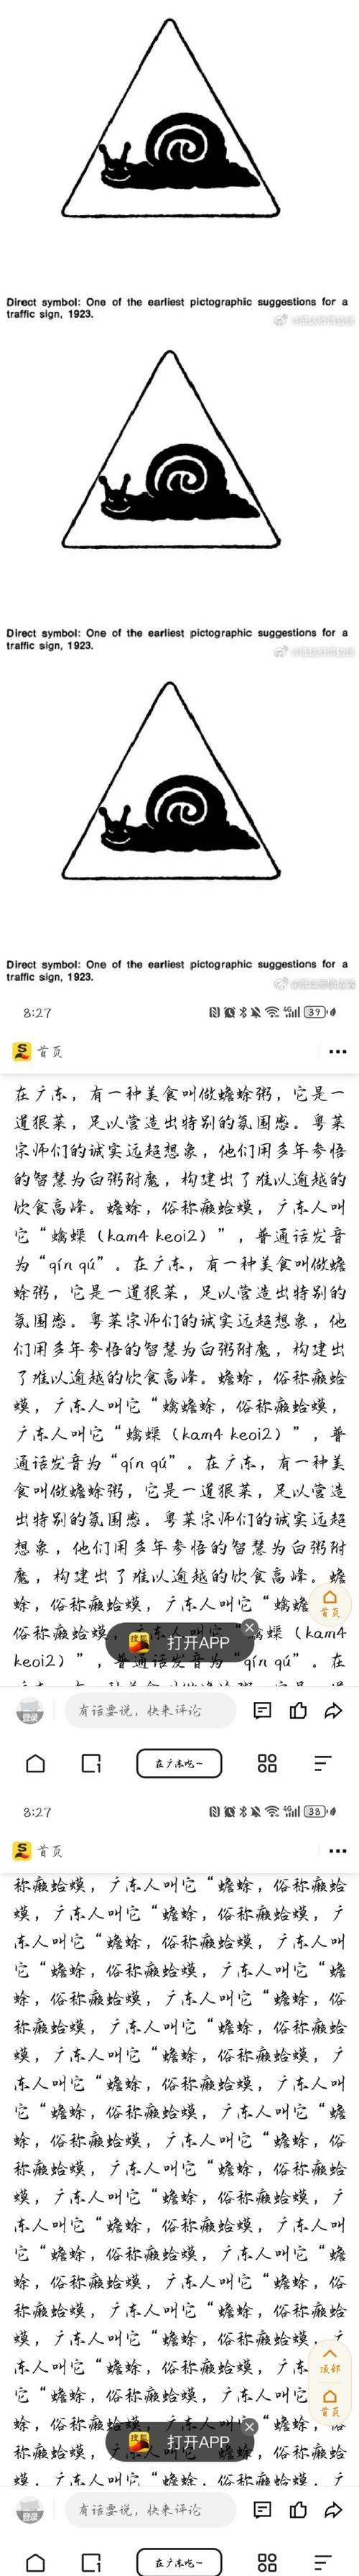 Direct symbol: One of the earliest pictographic suggestions for a
traffic sign, 1923.
Direct symbol: One of the earliest pictographic suggestions for a
traffic sign, 1923.
Direct symbol: One of the earliest pictographic suggestions for a
traffic sign, 1923.
8:27
4G 39
首页
在广东，有一种美食叫做蟾蜍粥，它是一
道狠菜，足以营造出特别的氛围感。粤菜
宗师们的诚实远超想象，他们用多年参悟
的智慧为白粥附魔，构建出了难以逾越的
饮食高峰。蟾蜍，俗称癞蛤蟆，广东人叫
它“蠄蟝（kam4 keoi2）”，普通话发音
为“qín qú”。在广东，有一种美食叫做蟾
蜍粥，它是一道狠菜，足以营造出特别的
氛围感。粤菜宗师们的诚实远超想象，他
们用多年参悟的智慧为白粥附魔，构建出
了难以逾越的饮食高峰。蟾蜍，俗称癞蛤
蟆，广东人叫它“蠄蟾蜍，俗称癞蛤蟆，
广东人叫它“蠄蟝（kam4 keoi2）”，普
通话发音为“qín qú”。在广东，有一种美
食叫做蟾蜍粥，它是一道狠菜，足以营造
出特别的氛围感。粤菜宗师们的诚实远超
想象，他们用多年参悟的智慧为白粥附
魔，构建出了难以逾越的饮食高峰。蟾
蜍，俗称癞蛤蟆，广东人叫它“蠄蟾
首页
俗称癞蛤蟆，广东人叫它 蟝（kam4
搜狐 打开APP
keoi2）”，普通话发音为“qín qú”。在
登录 有话要说，快来评论
1 在广东吃…
8:27
4G 38
首页
称癞蛤蟆，广东人叫它“蟾蜍，俗称癞蛤
蟆，广东人叫它“蟾蜍，俗称癞蛤蟆，广
东人叫它“蟾蜍，俗称癞蛤蟆，广东人叫
它“蟾蜍，俗称癞蛤蟆，广东人叫它“蟾
蜍，俗称癞蛤蟆，广东人叫它“蟾蜍，俗
称癞蛤蟆，广东人叫它“蟾蜍，俗称癞蛤
蟆，广东人叫它“蟾蜍，俗称癞蛤蟆，广
东人叫它“蟾蜍，俗称癞蛤蟆，广东人叫
它“蟾蜍，俗称癞蛤蟆，广东人叫它“蟾
蜍，俗称癞蛤蟆，广东人叫它“蟾蜍，俗
称癞蛤蟆，广东人叫它“蟾蜍，俗称癞蛤
蟆，广东人叫它“蟾蜍，俗称癞蛤蟆，广
东人叫它“蟾蜍，俗称癞蛤蟆，广东人叫
它“蟾蜍，俗称癞蛤蟆，广东人叫它“蟾
蜍，俗称癞蛤蟆，广东人叫它“蟾蜍，俗
称癞蛤蟆，广东人叫它“蟾蜍，俗称癞蛤
蟆，广东人叫它“蟾蜍，俗称癞蛤蟆，广
顶部
东人叫它“蟾蜍，俗称癞蛤蟆，广东
它“蟾蜍，俗称癞蛤蟆，广东人叫它
首页
蜍，俗称癞蛤蟆，广东人叫它“蟾蜍，俗
搜狐 打开APP
称癞蛤蟆，广东人叫它“蟾蜍，俗称癞蛤
蟆，广东人叫它“蟾蜍，俗称癞蛤蟆，广
登录 有话要说，快来评论
1 在广东吃…